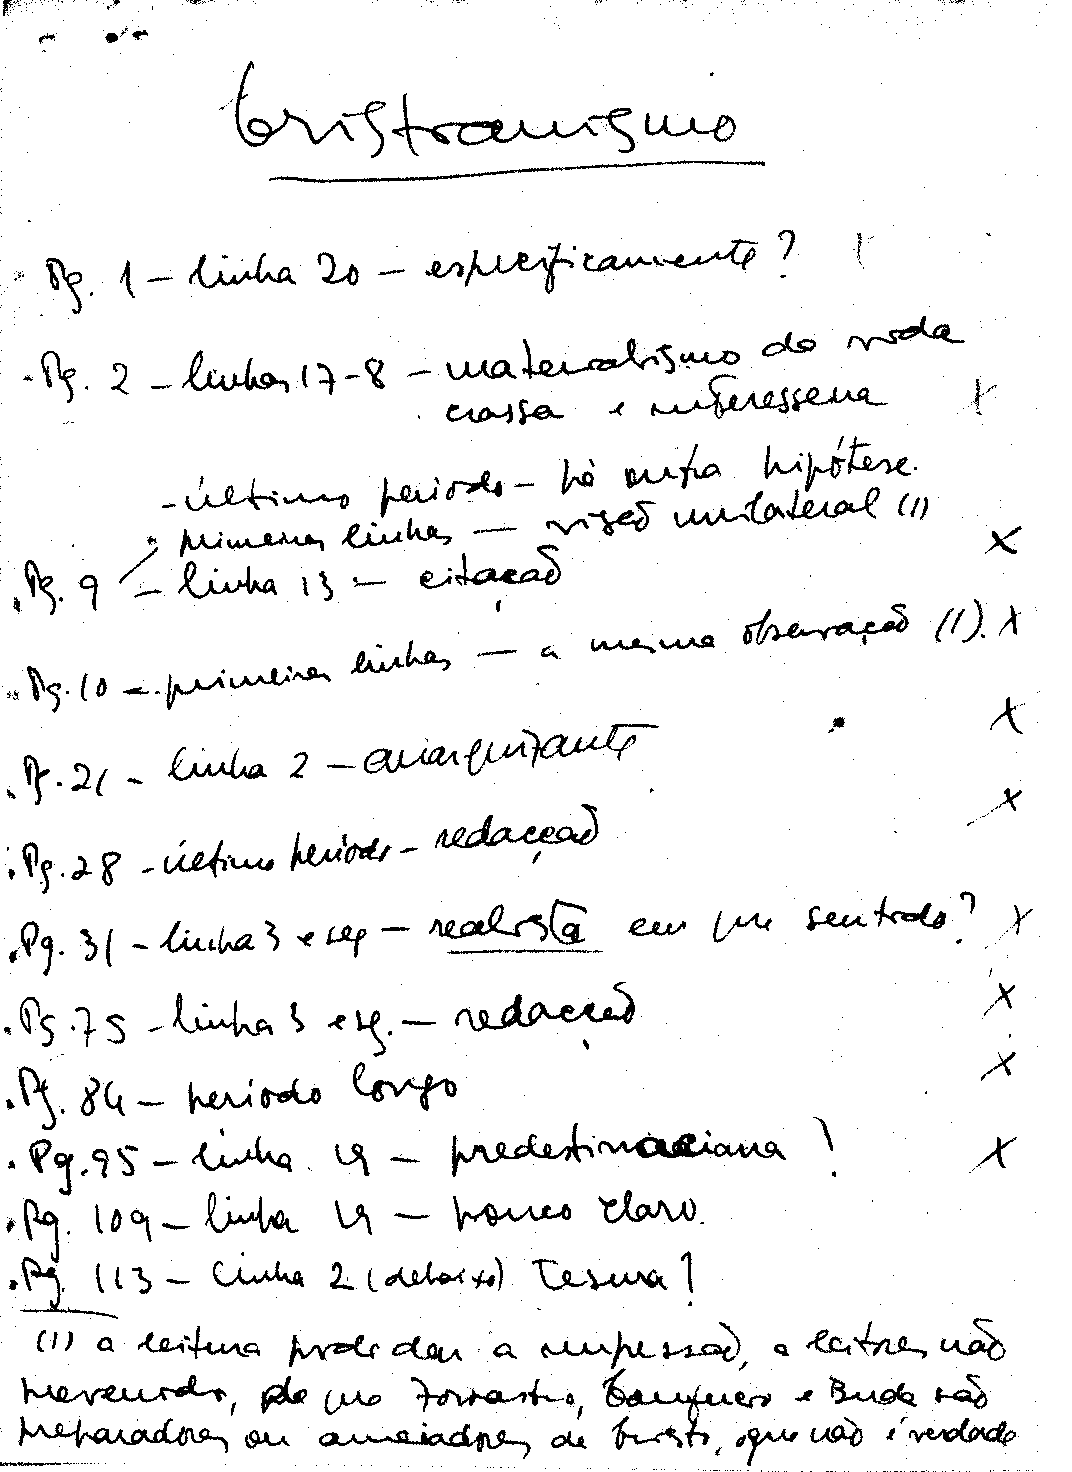 Cristianismo
Pg. 1 - linha 20 - especificamente? X
Pg. 2 - linhas 17-8 - materialismo da vida
crassa e interesseira X
- último período - há outra hipótese.
primeiras linhas - visão unilateral (1)
Pg. 9 - linha 13 - citação X
Pg. 10 - primeiras linhas - a mesma observação (1). X
Pg. 21 - linha 2 - anarquizante X
Pg. 28 - último período - redacção X
Pg. 31 - linha 3 e seg - realista em que sentido? X
Pg. 75 - linha 3 e sg. - redacção X
Pg. 84 - período longo X
Pg. 95 - linha 19 - predestinaciana! X
Pg. 109 - linha 19 - pouco claro.
Pg. 113 - linha 2 (debaixo)
(1) a leitura pode dar a impressão, a leitores não
prevenidos, de que Zoroastro, Confúcio e Buda são
preparadores ou anunciadores de Cristo, o que não é verdade